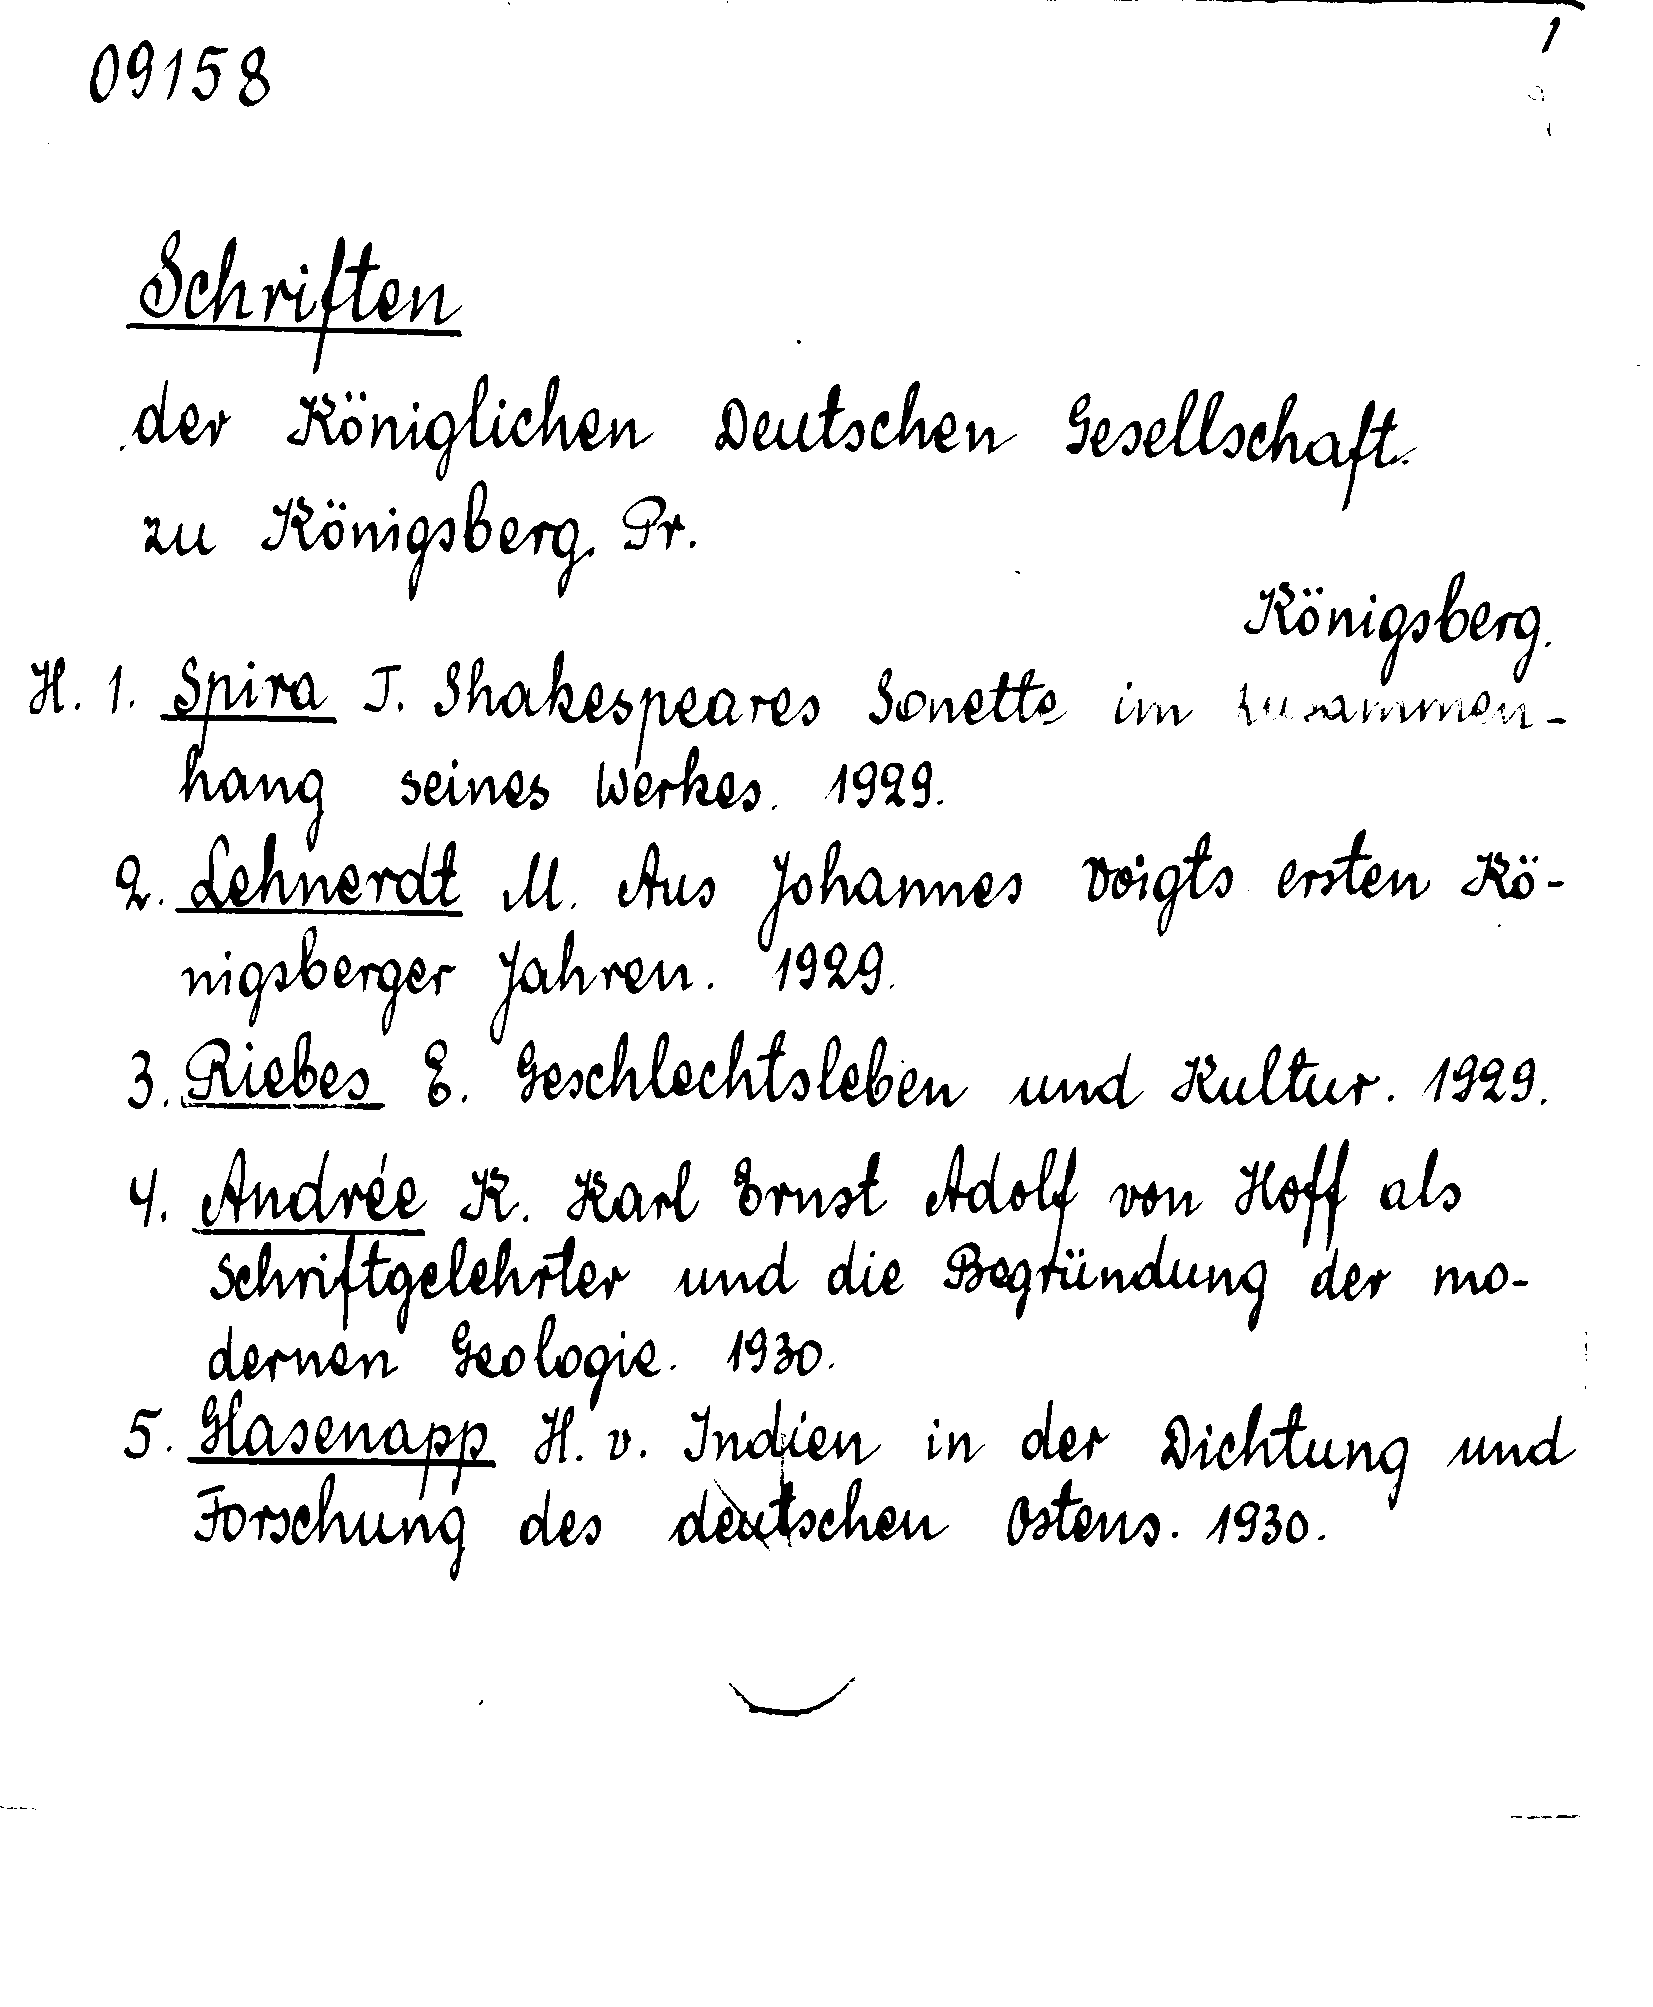 1
09158
Schriften
der Königlichen Deutschen Gesellschaft
zu Königsberg. Pr.
Königsberg.
H. 1. Spira T. Shakespeares Sonette im Zusammen-
hang seines Werkes. 1929.
2. Lehnerdt M. Aus Johannes Voigts ersten Kö-
nigsberger Jahren. 1929.
3. Riebes E. Geschlechtsleben und Kultur. 1929.
4. Andrée K. Karl Ernst Adolf von Hoff als
Schriftgelehrter und die Begründung der mo-
dernen Geologie. 1930.
5. Glasenapp H. v. Indien in der Dichtung und
Forschung des deutschen Ostens. 1930.